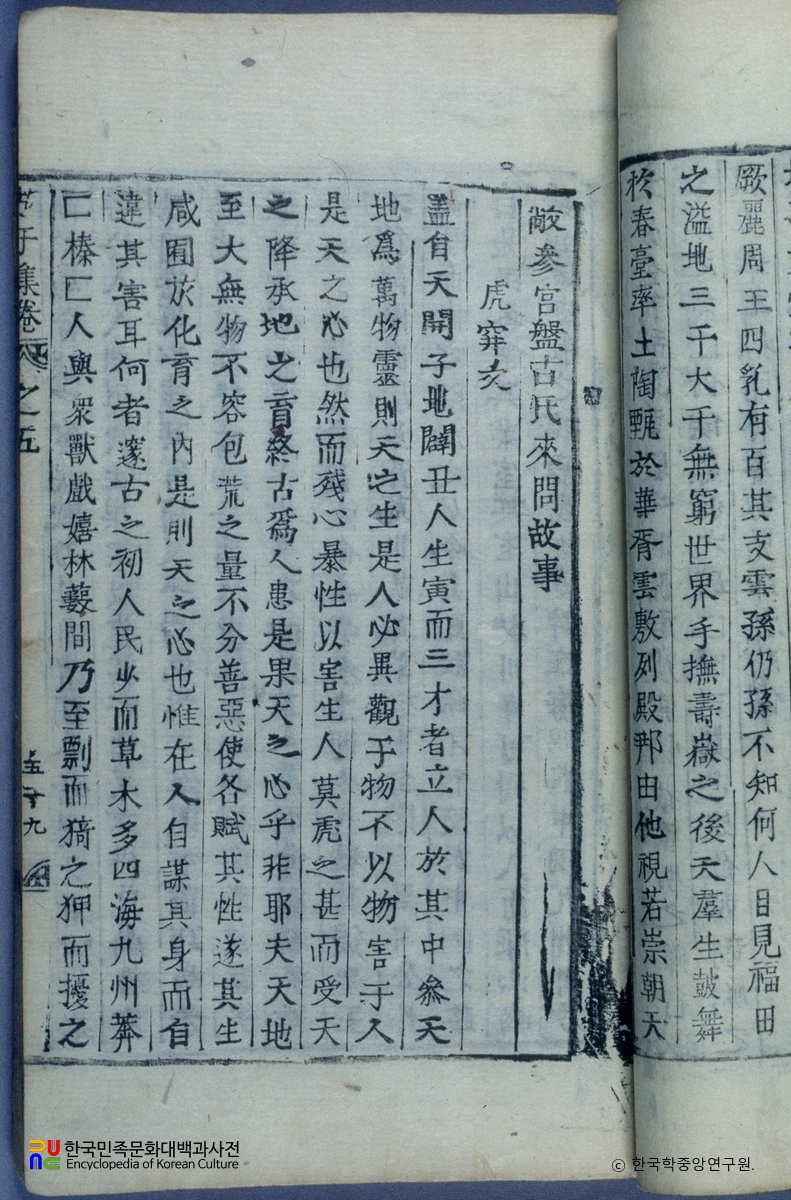 厥麗周王四乳有百其支雲孫仍孫不知何人目見福田
之溢地三千大千無窮世界手撫壽嶽之後天羣生鼓舞
於春臺率土陶甄於華胥雲敷列殿邦由他視若崇朝天
敞參宮盤古氏來問故事
虎穽文
盖自天開子地闢丑人生寅而三才者立人於其中叅天
地爲萬物靈則天之生是人必異觀于物不以物害于人
是天之心也然而殘心暴性以害生人莫虎之甚而受天
之降承地之育終古爲人患是果天之心乎非耶夫天地
至大無物不容包荒之量不分善惡使各賦其性遂其生
咸囿於化育之內是則天之心也惟在人自謀其身而自
違其害耳何者邃古之初人民少而草木多四海九州莽
匚榛匚人與衆獸戲嬉林藪間乃至剽而猗之狎而擾之
集卷之五
五十九
한국민족문화대백과사전
Encyclopedia of Korean Culture
ⓒ 한국학중앙연구원.